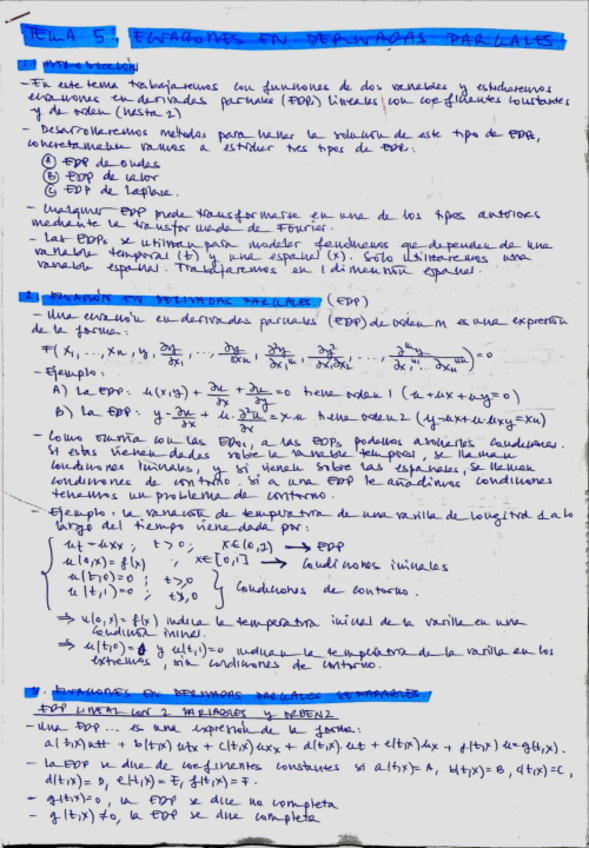 TEMA 5. ECUACIONES EN DERIVADAS PARCIALES
1. INTRODUCCIÓN
- En este tema trabajaremos con funciones de dos variables y estudiaremos
ecuaciones en derivadas parciales (EDPs) lineales con coeficientes constantes
y de orden (hasta 2)
- Desarrollaremos métodos para hallar la solución de este tipo de EDPs,
concretamente vamos a estudiar tres tipos de EDP:
Ⓐ EDP de ondas
Ⓑ EDP de calor
Ⓒ EDP de Laplace.
- Cualquier EDP puede transformarse en una de los tipos anteriores
mediante la transformada de Fourier.
- Las EDPs se utilizan para modelar fenómenos que dependen de una
variable temporal (t) y una espacial (x). Sólo utilizaremos una
variable espacial. Trabajaremos en 1 dimensión espacial.
2. ECUACIÓN EN DERIVADAS PARCIALES (EDP)
- Una ecuación en derivadas parciales (EDP) de orden m es una expresión
de la forma:
F(x₁, ..., xn, y, ∂y/∂x₁, ..., ∂y/∂xn, ∂²y/∂x₁, ∂y²/∂x₁∂x₂, ..., ) = 0
- Ejemplo:
A) La EDP: u(x,y) + ∂u/∂x + ∂u/∂y = 0 tiene orden 1 (u+ux+uy=0)
B) La EDP: y·∂u/∂x + u·∂²u/∂x = x·u tiene orden 2 (y·ux+u·uxy=xu)
- Como ocurría con las EDOs, a las EDPs podemos asociarles condiciones.
Si estas vienen dadas sobre la variable temporal, se llaman
condiciones iniciales, y si vienen sobre las espaciales, se llaman
condiciones de contorno. Si a una EDP le añadimos condiciones
tenemos un problema de contorno.
- Ejemplo: la variación de temperatura de una varilla de longitud 1 a lo
largo del tiempo viene dada por:
ut - uxx ; t>0 ; x∈(0,1) → EDP
u(0,x) = f(x) ; x∈[0,1] → Condiciones iniciales
u(t,0)=0 ; t>0
u(t,1)=0 ; t>0 } Condiciones de contorno.
⇒ u(0,x) = f(x) indica la temperatura inicial de la varilla en una
condición inicial.
⇒ u(t,0)=0 y u(t,1)=0 indican la temperatura de la varilla en los
extremos, sin condiciones de contorno.
ECUACIONES EN DERIVADAS PARCIALES SEPARABLES
EDP LINEAL CON 2 VARIABLES Y ORDEN 2
- Una EDP ... es una expresión de la forma:
a(t,x)utt + b(t,x)utx + c(t,x)uxx + d(t,x)·ut + e(t,x)ux + f(t,x)u = g(t,x).
- La EDP se dice de coeficientes constantes si a(t,x)=A, b(t,x)=B, c(t,x)=C,
d(t,x)=D, e(t,x)=E, f(t,x)=F.
- g(t,x)=0, la EDP se dice no completa
- g(t,x)≠0, la EDP se dice completa